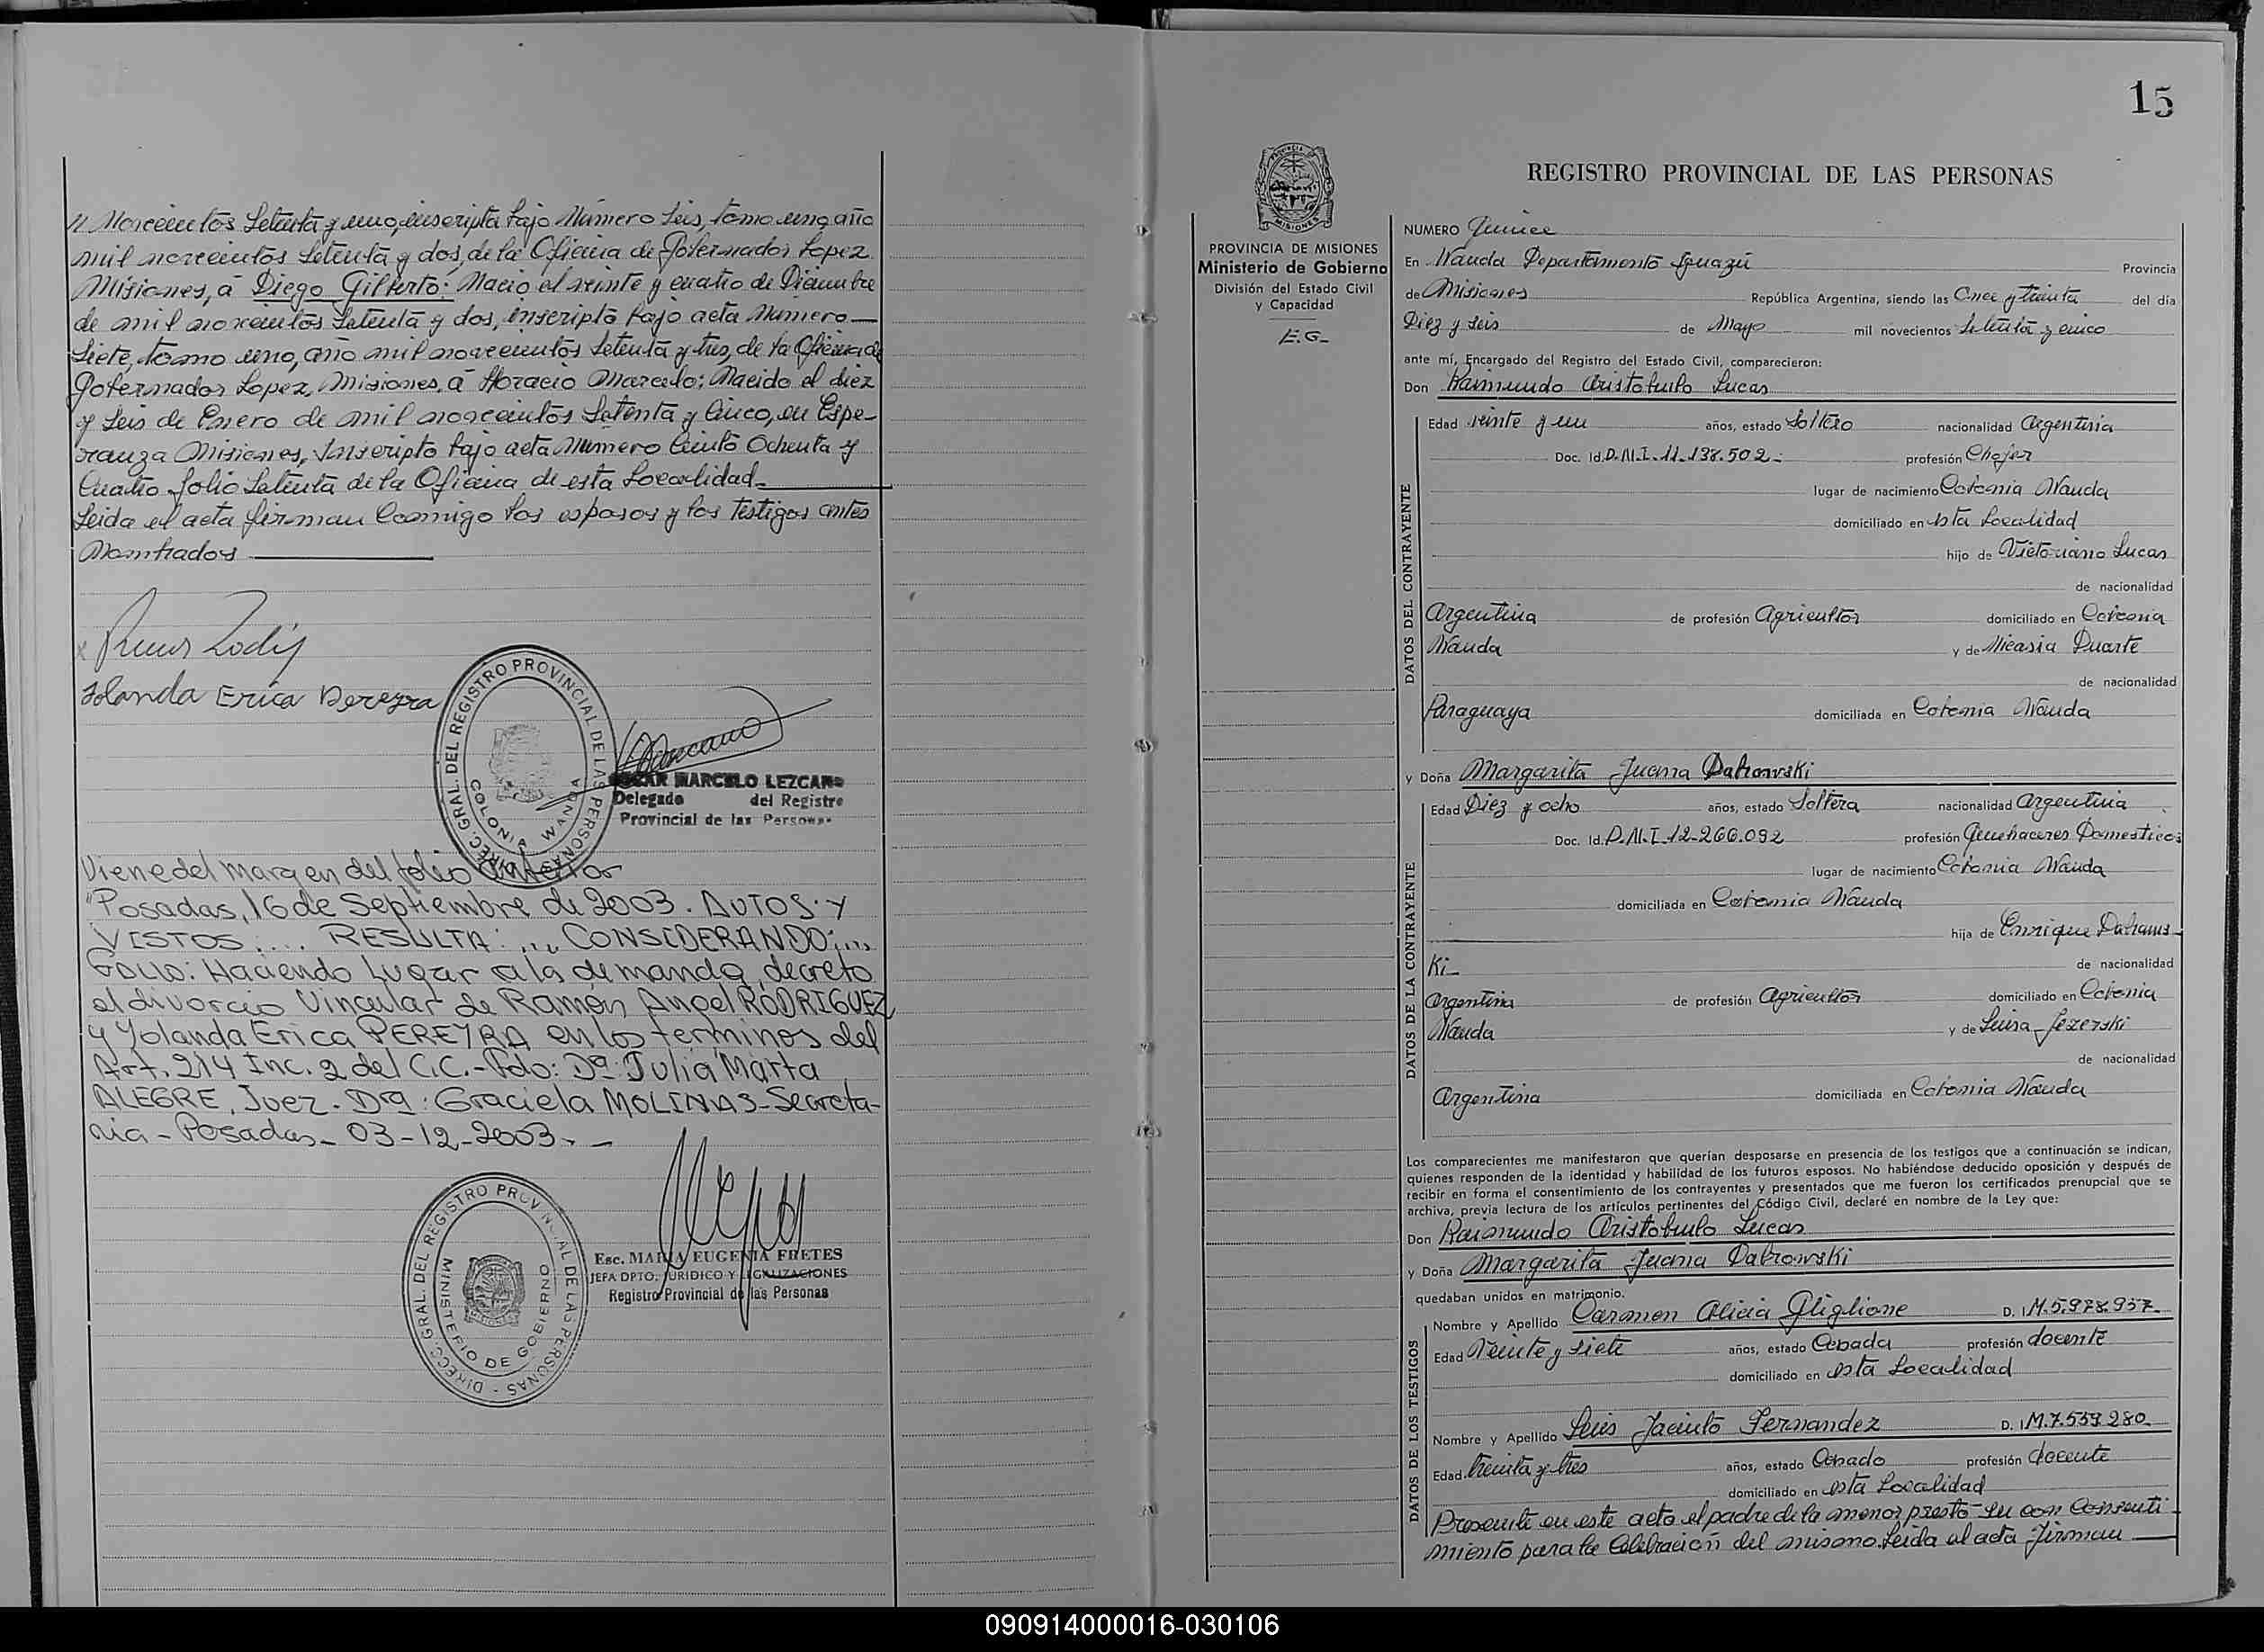 Novecientos Setenta y uno, inscripta bajo Número Seis, tomo uno, año
mil novecientos Setenta y dos, de la Oficina de Gobernador Lopez
Misiones, á Diego Gilberto: Nacio el veinte y cuatro de Diciembre
de mil novecientos Setenta y dos, inscripto bajo acta Número
Siete, tomo uno, año mil novecientos Setenta y tres, de la Oficina de
Gobernador Lopez, Misiones, á Horacio Marcelo; Nacido el diez
y Seis de Enero de mil novecientos Setenta y Cinco, en Espe-
ranza Misiones, Inscripto bajo acta Número Ciento Ochenta y
Cuatro folio Setenta de la Oficina de esta Localidad.
Leida el acta firman Conmigo los esposos y los testigos antes
Nombrados
Yolanda Erica Pereyra
DIREC. GRAL. DEL REGISTRO PROVINCIAL DE LAS PERSONAS
COLONIA WANDA
OSCAR MARCELO LEZCANO
Delegado del Registro
Provincial de las Personas
Viene del margen del folio anterior
"Posadas, 16 de Septiembre de 2003. AUTOS Y
VISTOS: ... RESULTA: ... CONSIDERANDO: ...
FALLO: Haciendo Lugar a la demanda, decreto
el divorcio Vincular de Ramón Angel RODRIGUEZ
y Yolanda Erica PEREYRA en los terminos del
Art. 214 Inc. 2 del C.C.- Fdo: Dª Julia Marta
ALEGRE, Juez. Dra: Graciela MOLINAS - Secreta-
ria - Posadas - 03-12-2003. -
DIRECC. GRAL. DEL REGISTRO PROVINCIAL DE LAS PERSONAS
MINISTERIO DE GOBIERNO
Esc. MARIA EUGENIA FRETES
JEFA DPTO. JURIDICO Y LEGALIZACIONES
Registro Provincial de las Personas
15
PROVINCIA DE MISIONES
Ministerio de Gobierno
División del Estado Civil
y Capacidad
E.G-
REGISTRO PROVINCIAL DE LAS PERSONAS
NUMERO Quince
En Wanda Departamento Iguazú Provincia
de Misiones República Argentina, siendo las Once y treinta del día
Diez y Seis de Mayo mil novecientos Setenta y cinco
ante mí, Encargado del Registro del Estado Civil, comparecieron:
Don Raimundo Aristobulo Lucas
DATOS DEL CONTRAYENTE
Edad veinte y un años, estado Soltero nacionalidad Argentina
Doc. Id. D.N.I. 11.138.502- profesión Chofer
lugar de nacimiento Colonia Wanda
domiciliado en esta Localidad
hijo de Victoriano Lucas
de nacionalidad
Argentina de profesión Agricultor domiciliado en Colonia
Wanda y de Nicasia Duarte
de nacionalidad
Paraguaya domiciliada en Colonia Wanda
y Doña Margarita Juana Dabrowski
DATOS DE LA CONTRAYENTE
Edad Diez y ocho años, estado Soltera nacionalidad Argentina
Doc. Id. D.N.I. 12-266.092 profesión Quehaceres Domesticos
lugar de nacimiento Colonia Wanda
domiciliada en Colonia Wanda
hija de Enrique Dabrows-
Ki- de nacionalidad
Argentina de profesión Agricultor domiciliado en Colonia
Wanda y de Luisa Jezerski
de nacionalidad
Argentina domiciliada en Colonia Wanda
Los comparecientes me manifestaron que querían desposarse en presencia de los testigos que a continuación se indican,
quienes responden de la identidad y habilidad de los futuros esposos. No habiéndose deducido oposición y después de
recibir en forma el consentimiento de los contrayentes y presentados que me fueron los certificados prenupcial que se
archiva, previa lectura de los artículos pertinentes del Código Civil, declaré en nombre de la Ley que:
Don Raimundo Aristobulo Lucas
y Doña Margarita Juana Dabrowski
quedaban unidos en matrimonio.
DATOS DE LOS TESTIGOS
Nombre y Apellido Carmen Alicia Gliglione D. I M.5.978.957
Edad Veinte y siete años, estado Casada profesión docente
domiciliado en esta Localidad
Nombre y Apellido Luis Jacinto Fernandez D. I M.7.559.280
Edad treinta y tres años, estado Casado profesión docente
domiciliado en esta Localidad
Presente en este acto el padre de la menor prestó su con Consenti-
miento para la Celebración del mismo. Leida el acta firman
090914000016-030106